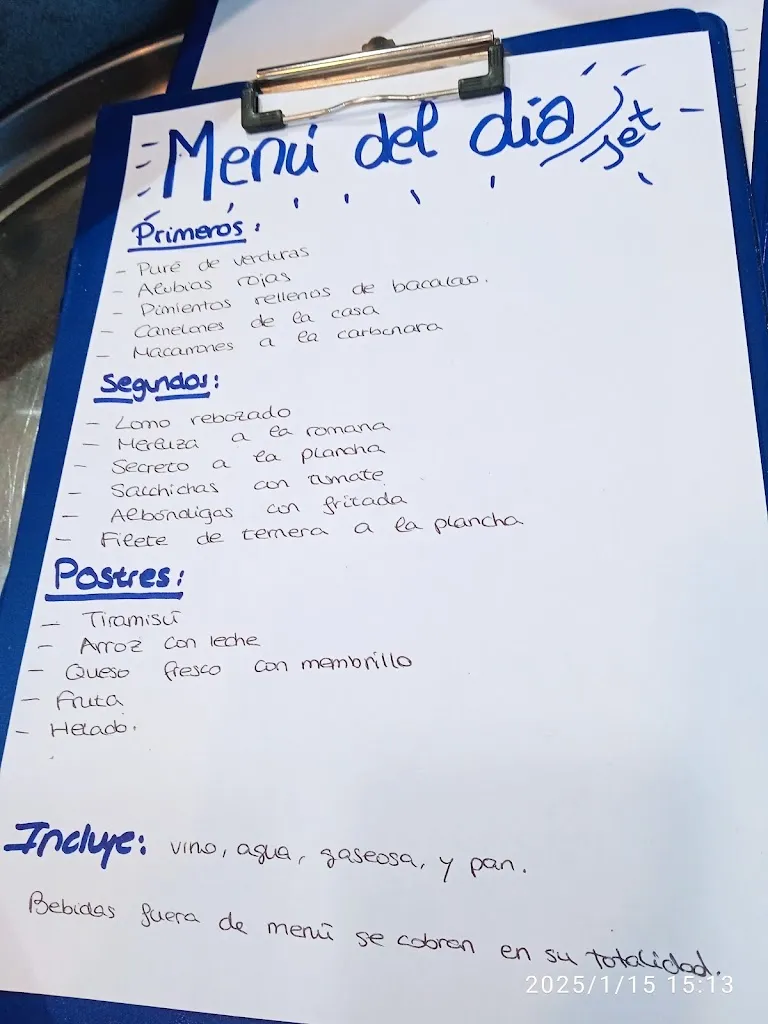 Menú del día
set
Primeros:
- Puré de verduras
- Alubias rojas
- Pimientos rellenos de bacalao.
- Canelones de la casa
- Macarrones a la carbonara
Segundos:
- Lomo rebozado
- Merluza a la romana
- Secreto a la plancha
- Salchichas con tomate
- Albóndigas con fritada
- Filete de ternera a la plancha
Postres:
- Tiramisú
- Arroz con leche
- Queso fresco con membrillo
- Fruta
- Helado.
Incluye: vino, agua, gaseosa, y pan.
Bebidas fuera de menú se cobran en su totalidad.
2025/1/15 15:13